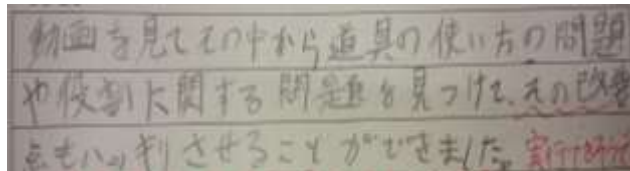 動画を見てその中から道具の使い方の問題
や役割に関する問題を見つけて、その改善
点もハッキリさせることができました。